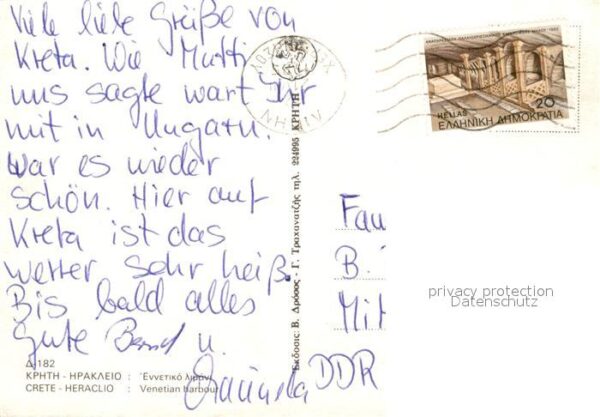 Viele liebe Grüße von
Kreta. Wie Mutti
uns sagte wart Ihr
mit in Ungarn.
War es wieder
schön. Hier auf
Kreta ist das
Wetter sehr heiß.
Bis bald alles
Gute Bernd u.
Δ-182
ΚΡΗΤΗ - ΗΡΑΚΛΕΙΟ : Ἐνετικό λιμάνι
CRETE - HERACLIO : Venetian harbour
Εκδοσις: Β. Δρόσος - Γ. Τραχανατζής τηλ. 224995 ΚΡΗΤΗ
HELLAS 20
ΕΛΛΗΝΙΚΗ ΔΗΜΟΚΡΑΤΙΑ
Fau
B.
Mit
DDR
privacy protection
Datenschutz